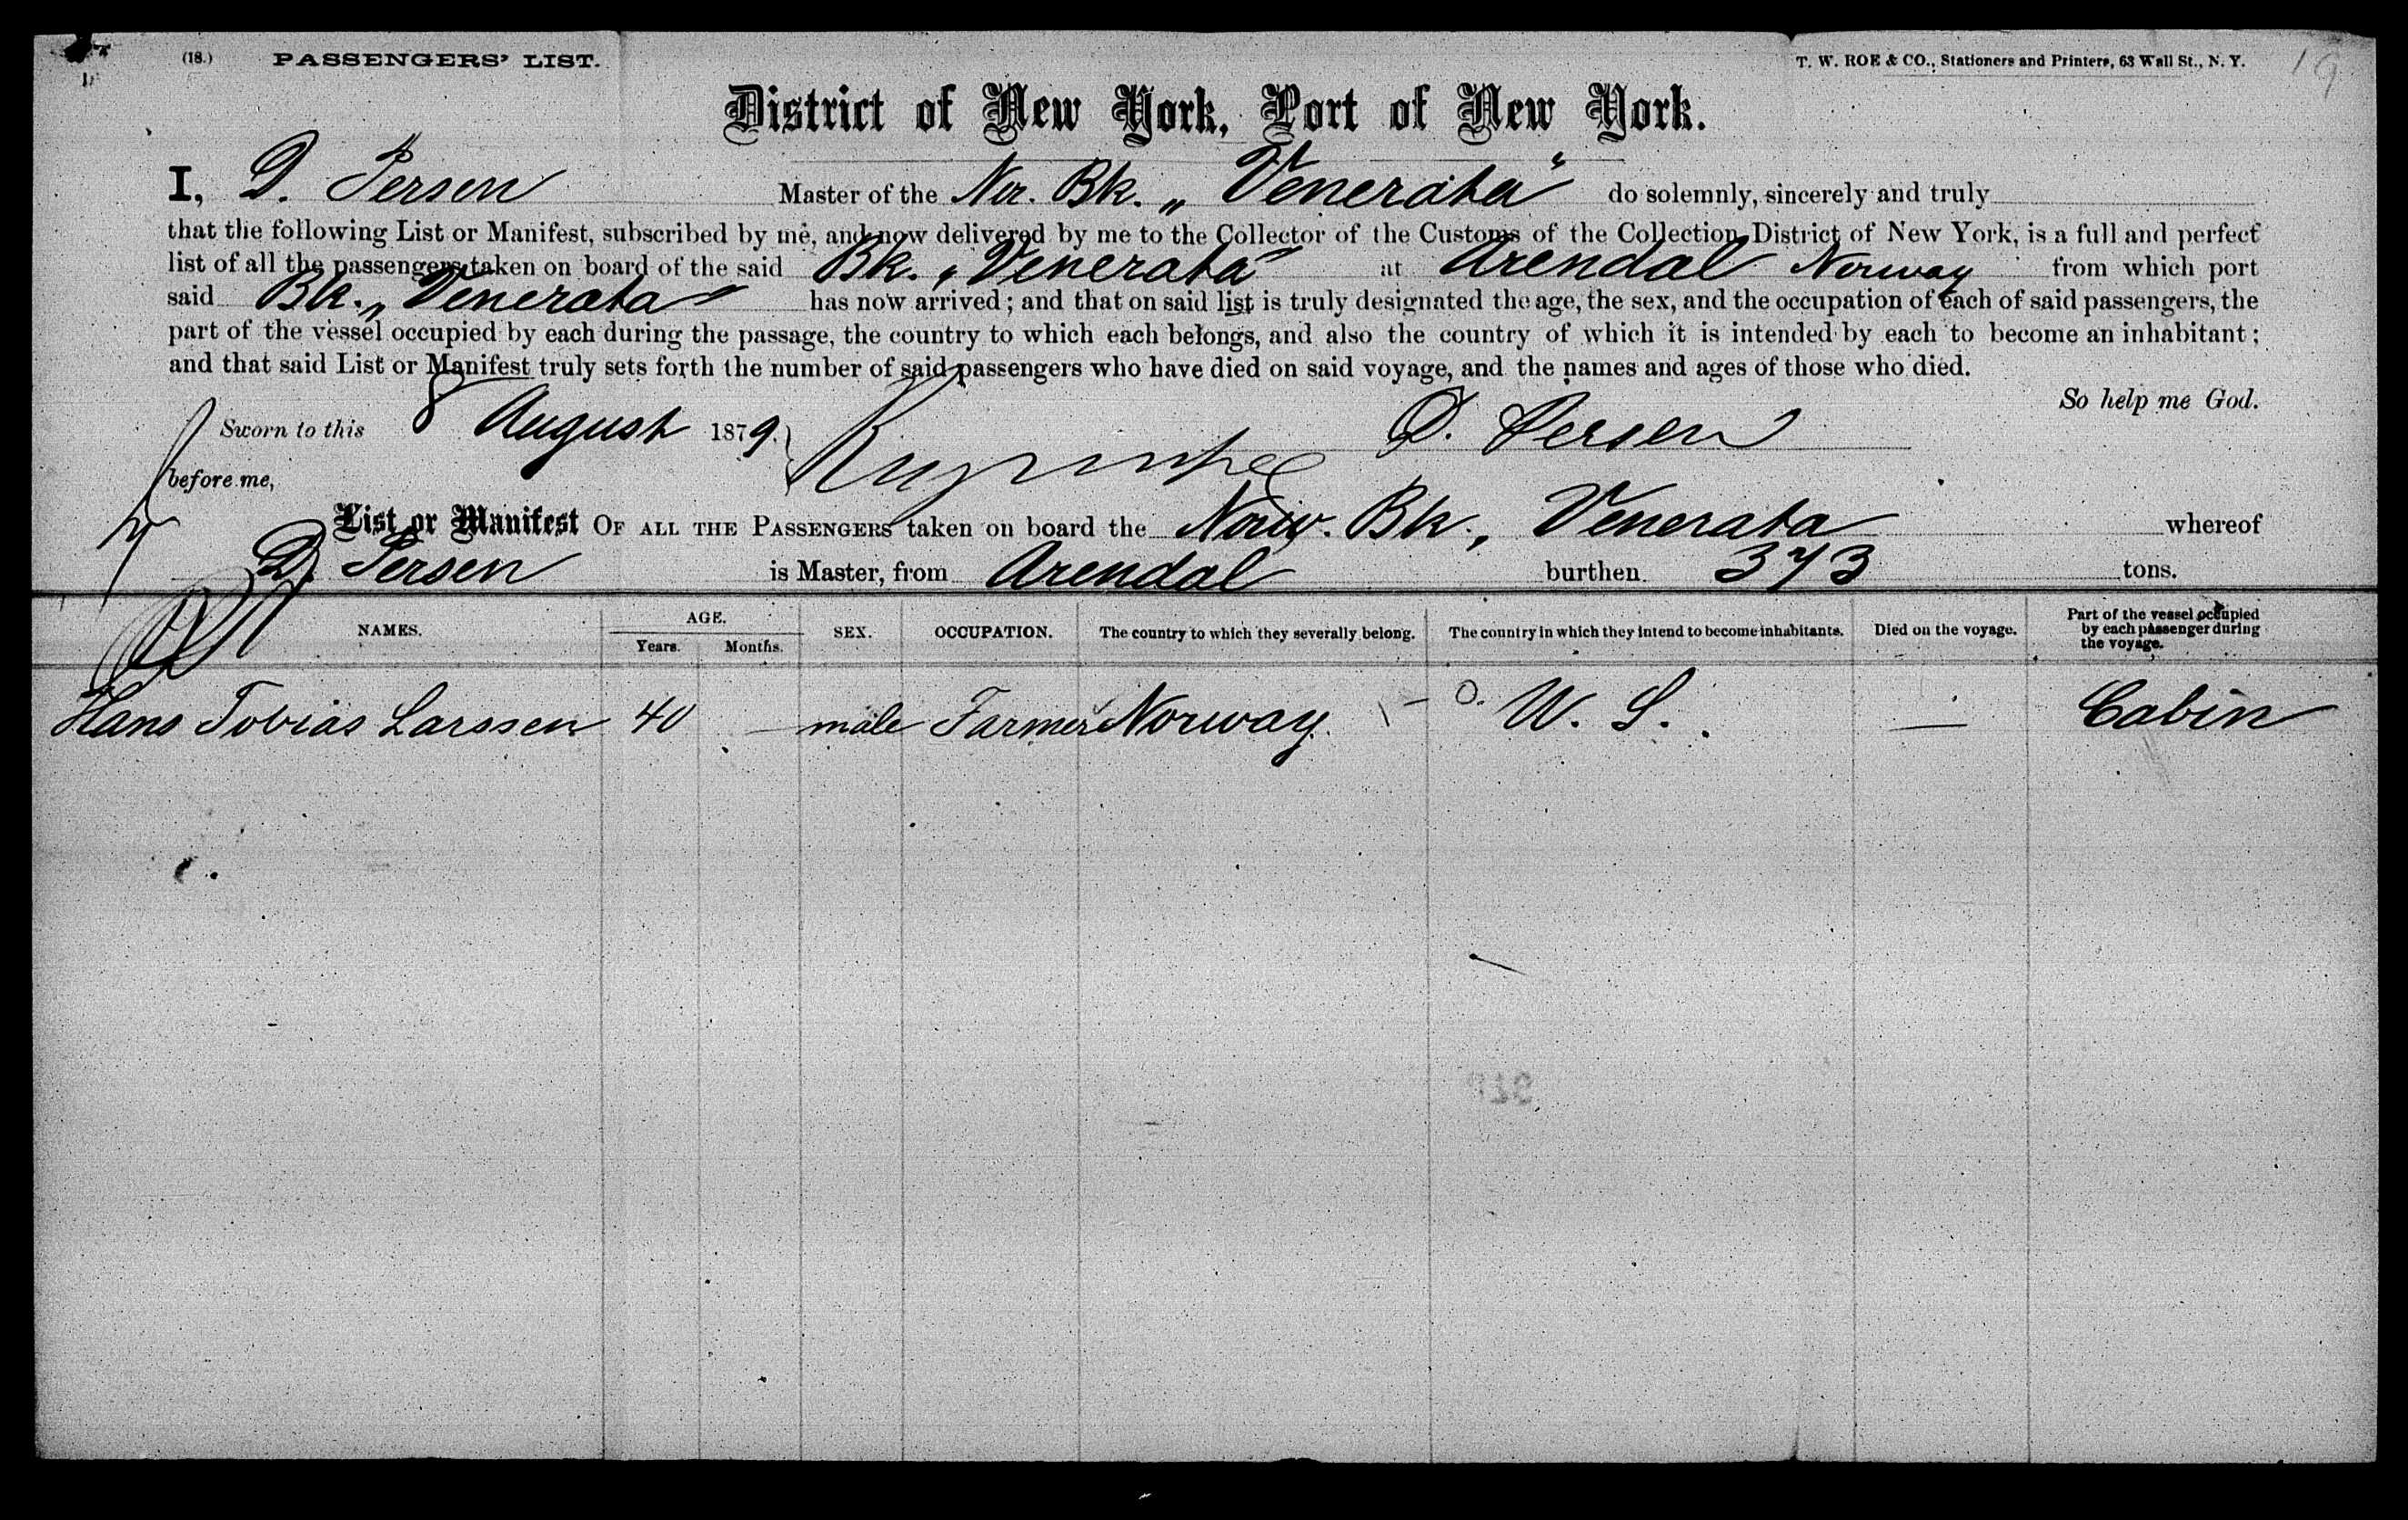 (18.) PASSENGERS' LIST. T. W. ROE & CO., Stationers and Printers, 63 Wall St., N. Y. 19
District of New York, Port of New York.
I, D. Persen Master of the Nor. Bk. „Venerata" do solemnly, sincerely and truly
that the following List or Manifest, subscribed by me, and now delivered by me to the Collector of the Customs of the Collection District of New York, is a full and perfect
list of all the passengers taken on board of the said Bk. „Venerata" at Arendal Norway from which port
said Bk. „Venerata" has now arrived; and that on said list is truly designated the age, the sex, and the occupation of each of said passengers, the
part of the vessel occupied by each during the passage, the country to which each belongs, and also the country of which it is intended by each to become an inhabitant;
and that said List or Manifest truly sets forth the number of said passengers who have died on said voyage, and the names and ages of those who died.
So help me God.
Sworn to this 8 August 1879. D. Persen
before me,
List or Manifest OF ALL THE PASSENGERS taken on board the Norw. Bk. Venerata whereof
D. Persen is Master, from Arendal burthen 373 tons.
NAMES. AGE. Years. Months. SEX. OCCUPATION. The country to which they severally belong. The country in which they intend to become inhabitants. Died on the voyage. Part of the vessel occupied by each passenger during the voyage.
Hans Tobias Larssen 40 — male Farmer Norway. U. S. — Cabin